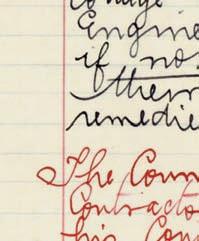 Engine
if no
them
remedie
The Coun
Contracto
his Con